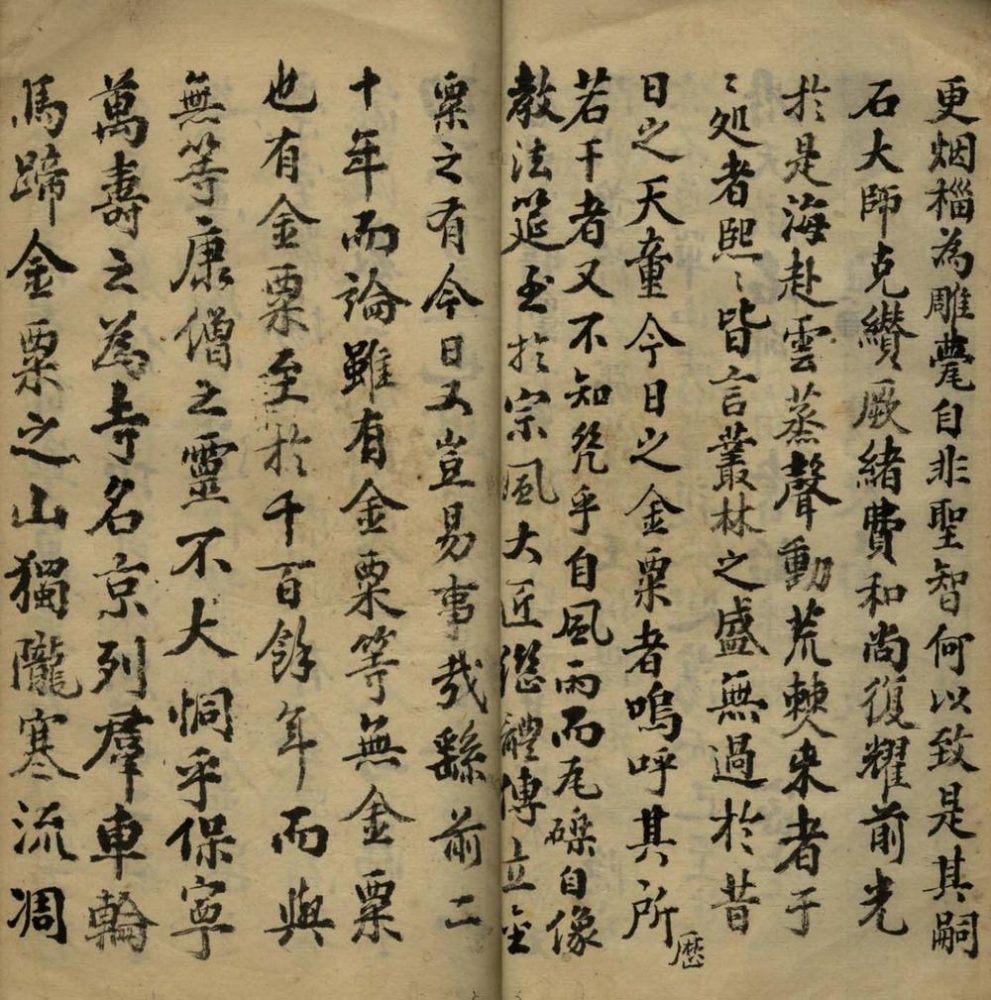 更烟為雕甍自非聖智何以致是其嗣
石大師克纘厥緒費和尚復耀前光
於是海赴雲蒸聲動荒僰来者于
〻処者熙〻皆言叢林之盛無過於昔
日之天童今日之金粟者嗚呼其所歷
若干者又不知凢乎自風雨而瓦礫自像
教法筵至於宗風大匠繼體傳立金
粟之有今日又豈易事哉繇前二
十年而論雖有金粟等無金粟
也有金粟至於千百餘年而與
無等康僧之靈不大恫乎保寧
萬壽之為寺名京列羣車輪
馬蹄金粟之山獨隴寒流凋